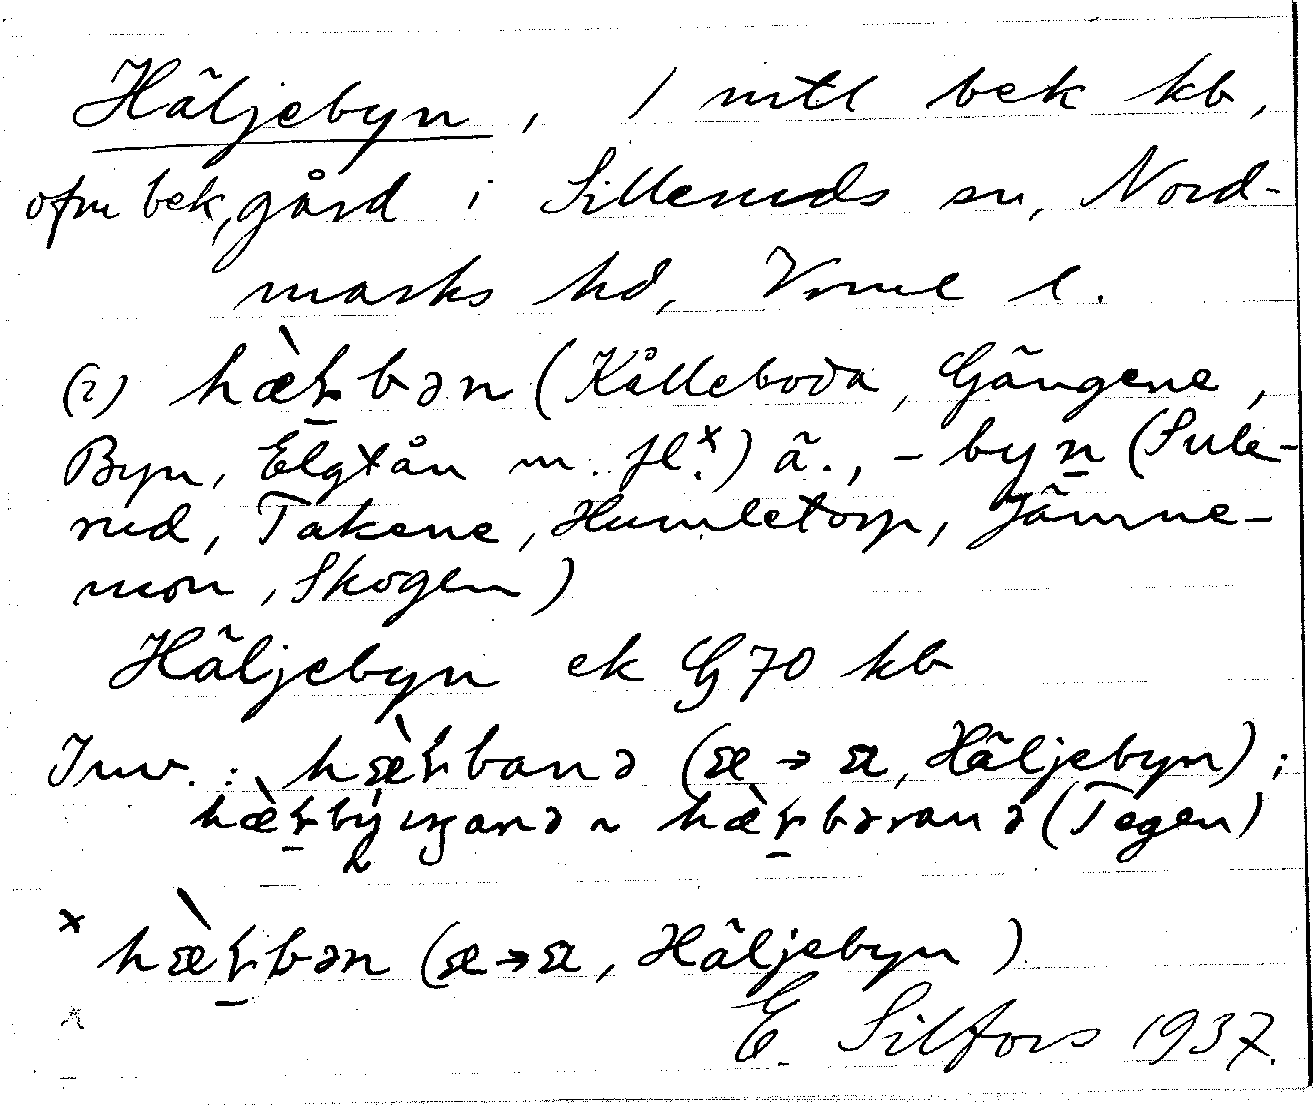 Häljebyn, 1 mtl bek kb,
ofm bek, gård i Silleruds sn, Nord-
marks hd, Vrml l.
(i) hæ̀ɽbən (Kålleboda, Gängene,
Byn, Elgtån m. fl.ˣ) ä., -byn (Sule-
rud, Takene, Humletorp, Jämne-
mon, Skogen)
Häljebyn ek G 70 kb
Inv.: hæ̀ɽbanə (æ → a, Häljebyn);
hæ̀ɽbýŋganə ~ hæ̀ɽbəranə (Tegen)
x hæ̀ɽbən (æ → a, Häljebyn)
E. Silfors 1937.